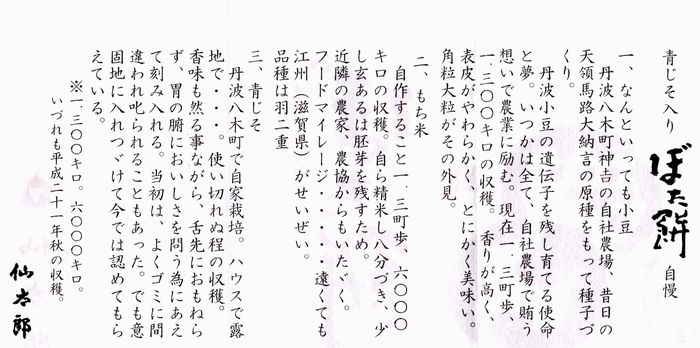 青じそ入り ぼた餅 自慢
一、なんといっても小豆
丹波八木町神吉の自社農場、昔日の
天領馬路大納言の原種をもって種子づ
くり。
丹波小豆の遺伝子を残し育てる使命
と夢。いつかは全て、自社農場で賄う
想いで農業に励む。現在一.三町歩、
一.三〇〇キロの収穫。香りが高く、
表皮がやわらかく、とにかく美味い。
角粒大粒がその外見。
二、もち米
自作すること一.三町歩、六〇〇〇
キロの収穫。自ら精米し八分づき、少
し玄あるは胚芽を残すため。
近隣の農家、農協からもいたゞく。
フードマイレージ・・・・遠くても
江州(滋賀県)がせいぜい。
品種は羽二重
三、青じそ
丹波八木町で自家栽培。ハウスで露
地で・・・。使い切れぬ程の収穫。
香味も然る事ながら、舌先におもねら
ず、胃の腑においしさを問う為にあえ
て刻み入れる。当初は、よくゴミに間
違われ叱られることもあった。でも意
固地に入れつゞけて今では認めてもら
えている。
※一.三〇〇キロ。六〇〇〇キロ。
いづれも平成二十一年秋の収穫。
仙太郎